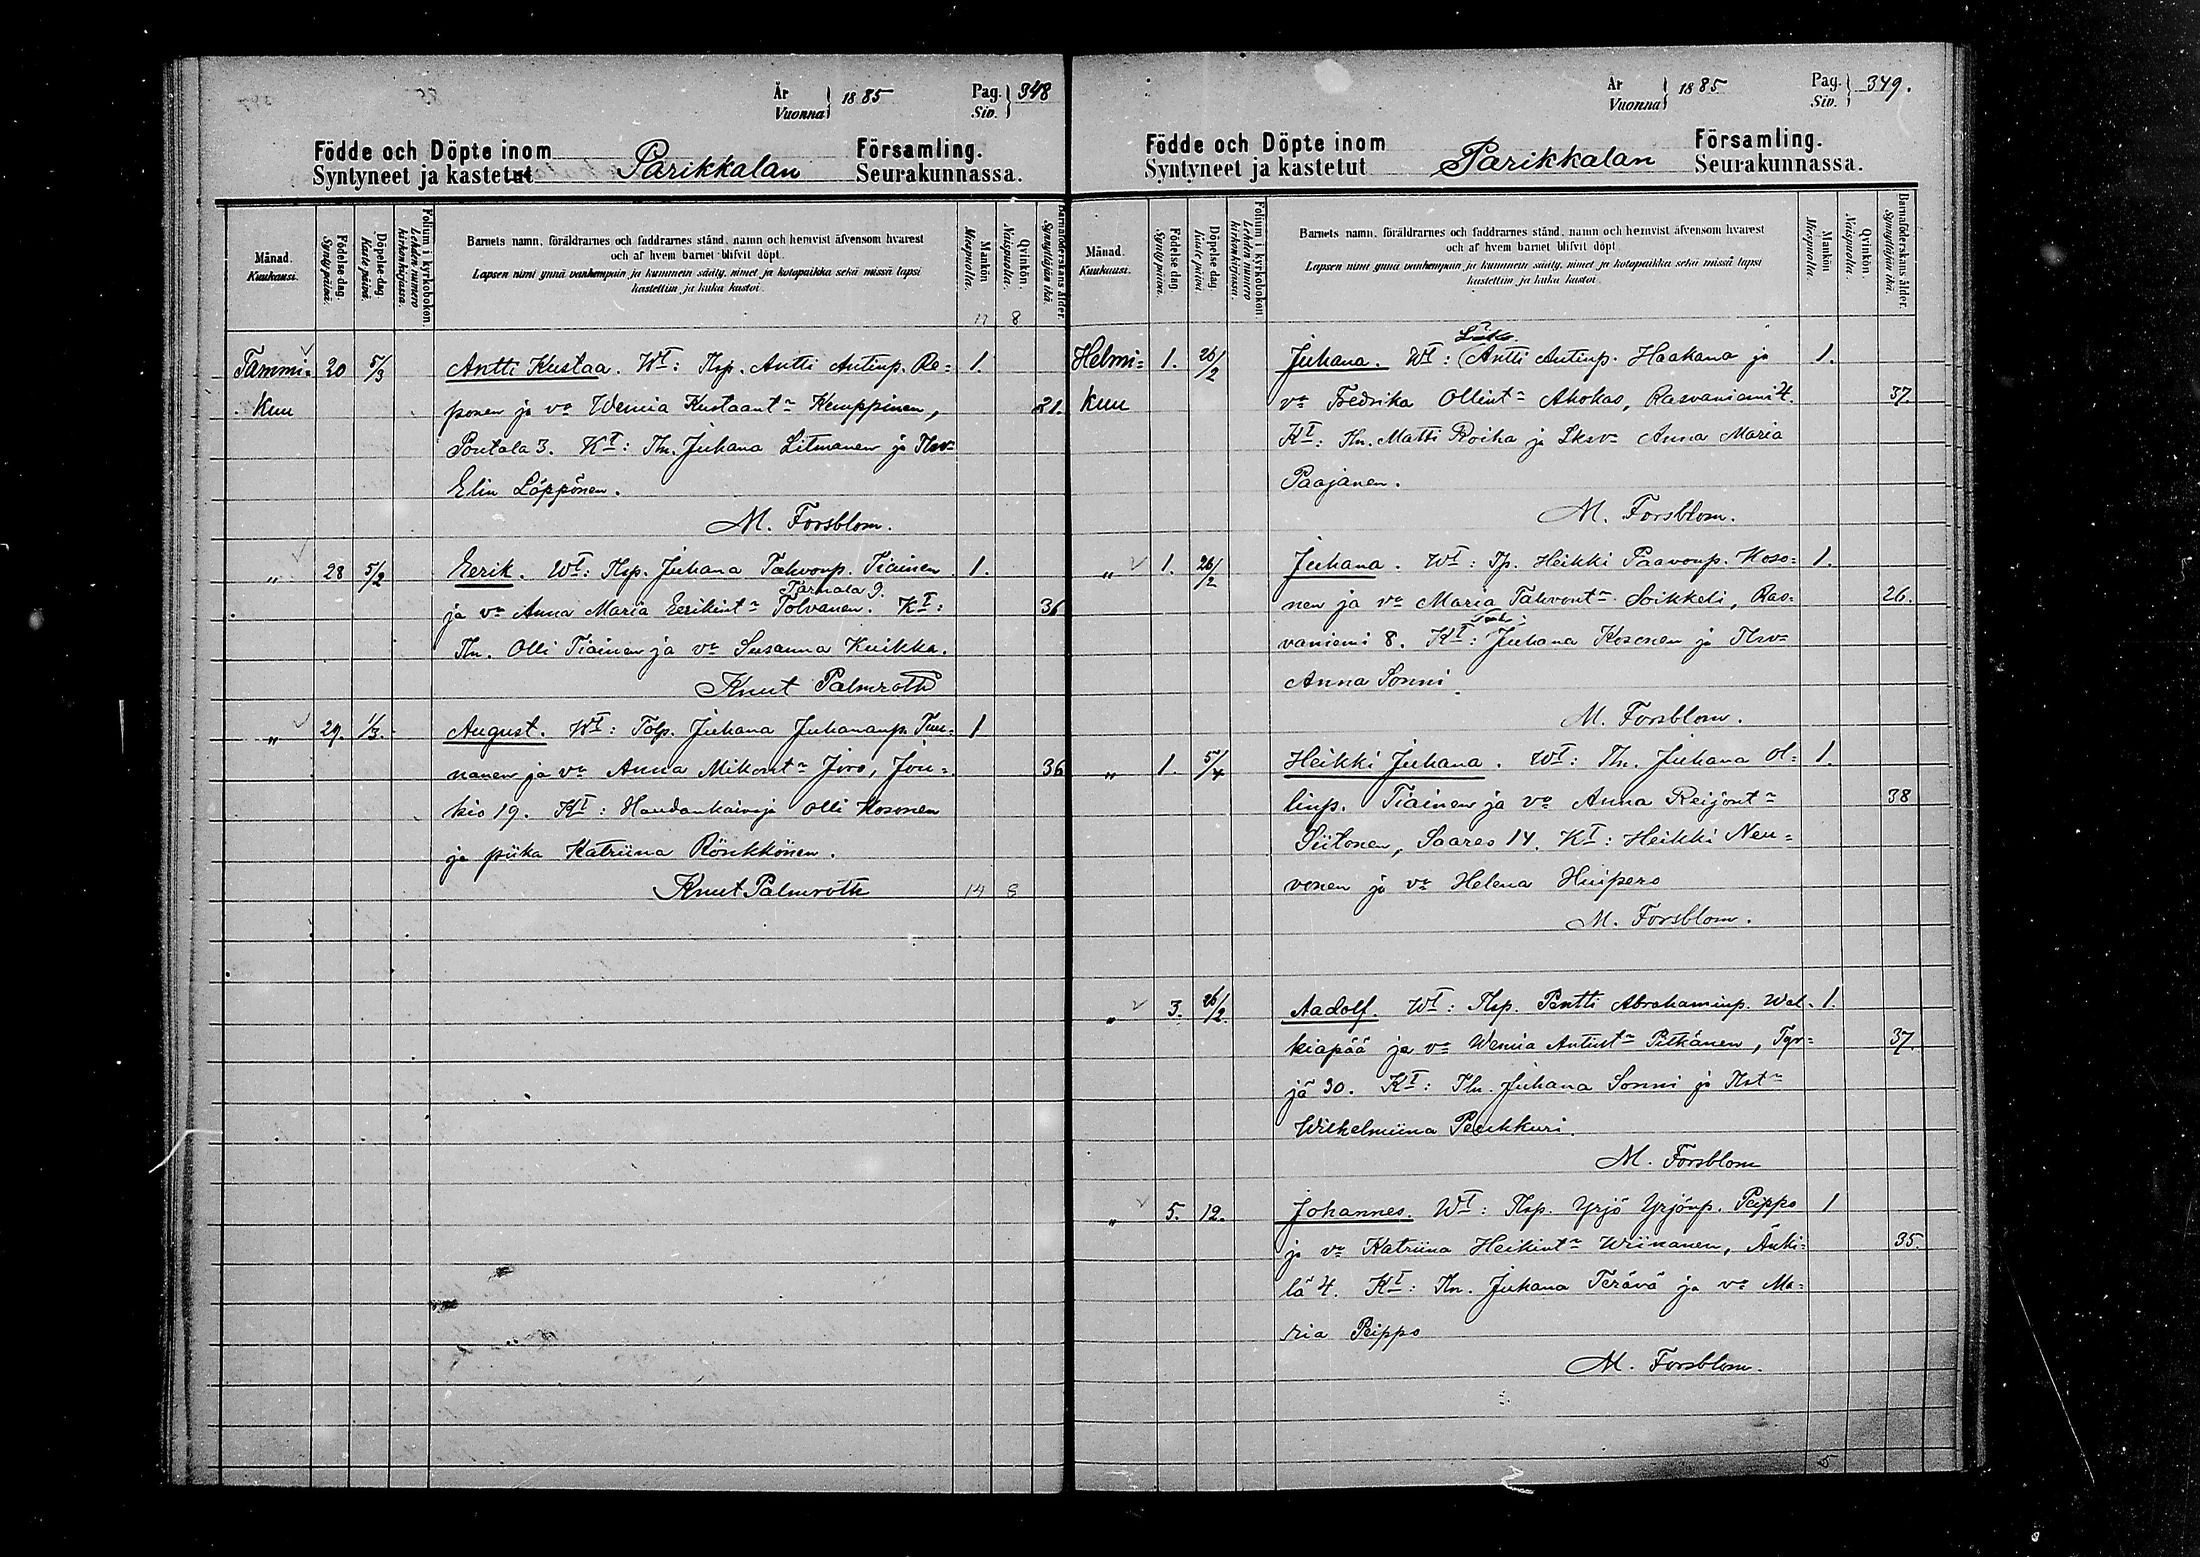 År
Vuonna 1885
Pag.
Siv. 348
Födde och Döpte inom Parikkalan Församling.
Syntyneet ja kastetut Seurakunnassa.
Månad.
Kuukausi.
Födelse-dag.
Syntypäivä.
Döpelse-dag.
Kaste päivä.
Folium i kyrkobokon.
Lehden numero kirkonkirjassa.
Barnets namn, föräldrarnes och faddrarnes stånd, namn och hemvist äfvensom hvarest
och af hvem barnet blifvit döpt.
Lapsen nimi ynnä vanhempain ja kummein sääty, nimet ja kotopaikka sekä missä lapsi
kastettiin ja kuka kastoi.
Mankön
Miespuolta.
Qvinkön.
Naispuolta.
Barnaföderskans ålder.
Synnyttäjän ikä.
8
Tammi= 20 5/3 Antti Kustaa. Wt: Tlsp. Antti Antinp. Re= 1.
Kuu ponen ja va Wemia Kustaant Kemppinen, 21.
Poutala 3. Kt: Tln. Juhana Litmanen ja Tlsv
Elin Löppönen.
M. Forsblom.
„ 28 5/2 Eerik. Wt: Tlsp. Juhana Tahvonp. Tiainen 1.
Tarmala 9.
ja va Anna Maria Eerikint Tolvanen. Kt: 36
Tln. Olli Tiainen ja va Susanna Kuikka.
Knut Palmroth
„ 29. 1/3. August. Wt: Tolp. Juhana Juhananp. Tuu= 1
nanen ja va Anna Mikont Jiro, Jou= 36
kio 19. Kt: Haudankaivaja Olli Kosonen
ja piika Katriina Rönkkönen.
Knut Palmroth 14 8
År
Vuonna 1885
Pag.
Siv. 349.
Födde och Döpte inom Parikkalan Församling.
Syntyneet ja kastetut Seurakunnassa.
Månad.
Kuukausi.
Födelse-dag.
Synty päivä.
Döpelse-dag.
Kaste päivä
Folium i kyrkobokon
Lehden numero kirkonkirjassa.
Barnets namn, föräldrarnes och faddrarnes stånd, namn och hemvist äfvensom hvarest
och af hvem barnet blifvit döpt.
Lapsen nimi ynnä vanhempain ja kummein sääty, nimet ja kotopaikka sekä missä lapsi
kastettiin ja kuka kastoi.
Mankön
Miespuolta.
Qvinkön
Naispuolta.
Barnaföderskans ålder.
Synnyttäjän ikä.
Helmi= 1. 26/2 Juhana. Wt: Antti Antinp. Haakana ja 1.
kuu va Fredrika Ollint Ahokas, Rasvaniemi 4. 37.
Kt: Tln. Matti Roiha ja Lksv Anna Maria
Paajanen.
M. Forsblom.
„ 1. 26/2 Juhana. Wt: Tp. Heikki Paavonp. Koso= 1.
nen ja va Maria Tahvont Soikkeli, Ras= 26.
vaniemi 8. Kt: Juhana Kosonen ja Tlsv
Anna Sonni
M. Forsblom.
„ 1. 5/4 Heikki Juhana. Wt: Tln. Juhana Ol= 1.
linp. Tiainen ja va Anna Reijont 38
Siitonen, Saares 14. Kt: Heikki Neu=
vonen ja va Helena Huipero
M. Forsblom.
„ 3. 26/2. Aadolf. Wt: Tlsp. Pentti Abrahaminp. Wal= 1.
kiapää ja va Wemia Antint Pitkänen, Tyr= 37.
jä 30. Kt: Tln. Juhana Sonni ja Tlst
Wilhelmiina Peukkuri.
M. Forsblom
„ 5. 12. Johannes. Wt: Tlsp. Yrjö Yrjönp. Peippo 1
ja va Katriina Heikint Wiinanen, Änki= 35.
lä 4. Kt: Tln. Juhana Terävä ja va Ma=
ria Peippo
M. Forsblom.
5